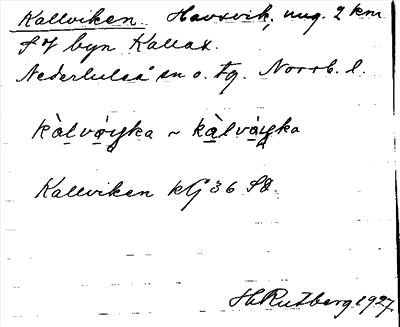 Kallviken. Havsvik, ung. 2 km
byn Kallax.
Nederluleå sn o. tg. Norrb. l.
kàlvəi̯ka ~ kàlvái̯ka
Kallviken kG 36 SO.
H. Rutberg 1927